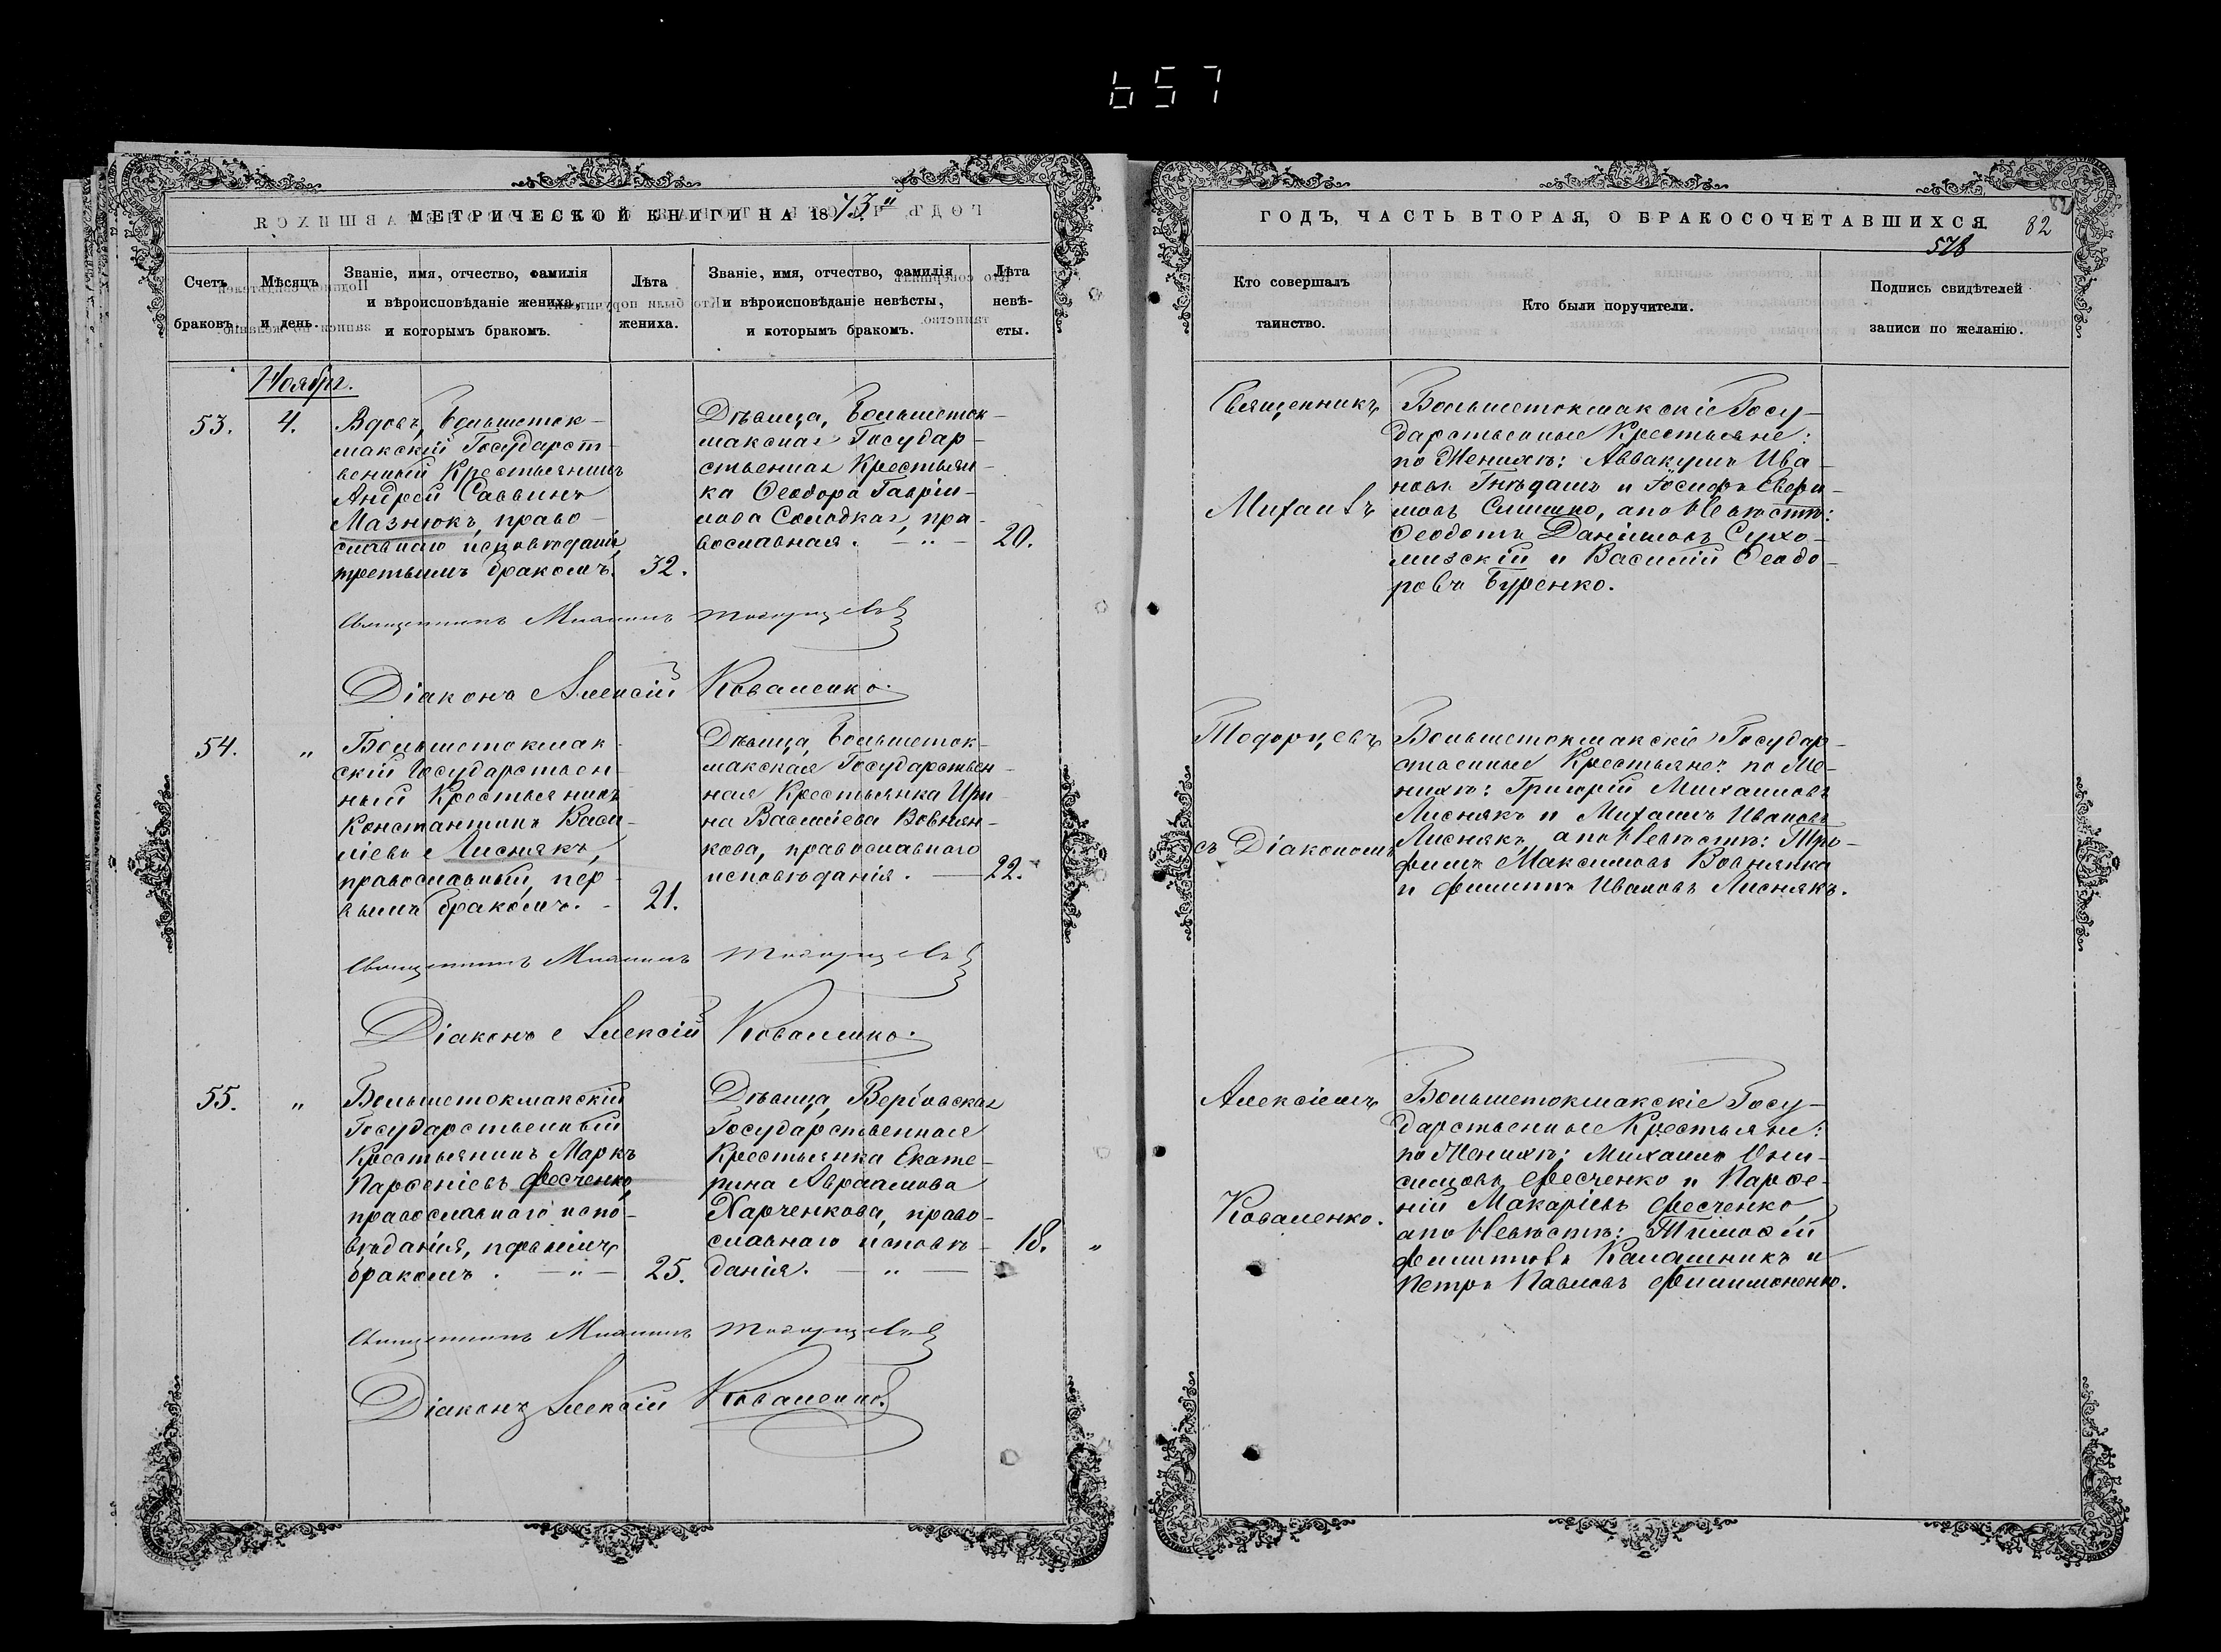 657
МЕТРИЧЕСКОЙ КНИГИ НА 1873
Счетъ браковъ.
Мѣсяцъ и день.
Званіе, имя, отчество, фамилія
и вѣроисповѣданіе жениха,
и которымъ бракомъ.
Лѣта
жениха.
Званіе, имя, отчество, фамилія
и вѣроисповѣданіе невѣсты,
и которымъ бракомъ.
Лѣта
невѣ-
сты.
Ноябрь.
53.
4.
Вдовъ, Большеток-
макскій Государст-
венный Крестьянинъ
Андрей Саввинъ
Мазнюкъ, право-
славнаго исповѣданія,
третьимъ бракомъ.
32.
Дѣвица, Большеток-
макская Государ-
ственная Крестьян-
ка Ѳеодора Гаврии-
лова Солодкая, пра-
вославная.
20.
Священникъ Михаилъ Тодорцевъ
Діаконъ Алексій Коваленко.
54.
"
Большетокмак-
скій Государствен-
ный Крестьянинъ
Константинъ Васи-
ліевъ Лиснякъ,
православный, пер-
вымъ бракомъ. -
21.
Дѣвица, Большеток-
макская Государствен-
ная Крестьянка Ири-
на Василіева Вовнян-
кова, православнаго
исповѣданія.
22.
Священникъ Михаилъ Тодорцевъ
Діаконъ Алексій Коваленко.
55.
"
Большетокмакскій
Государственный
Крестьянинъ Маркъ
Парѳеніевъ Фесченко,
православнаго испо-
вѣданія, первымъ
бракомъ. — " —
25.
Дѣвица,
Государственная
Крестьянка Екате-
рина Авраамова
Харченкова, право-
славнаго исповѣ-
данія. — " —
18.
"
Священникъ Михаилъ Тодорцевъ
Діаконъ Алексій Коваленко.
ГОДЪ, ЧАСТЬ ВТОРАЯ, О БРАКОСОЧЕТАВШИХСЯ.
82
578
Кто совершалъ
таинство.
Кто были поручители.
Подпись свидѣтелей
записи по желанію.
Священникъ
Михаилъ
Тодорцевъ
съ Діакономъ
Алексіемъ
Коваленко.
Большетокмакскіе Госу-
дарственные Крестьяне:
по Женихѣ: Аввакумъ Ива-
новъ Гнѣдашъ и Іосифъ
Слишко, а по Невѣстѣ:
Ѳеодотъ Даніиловъ Сухо-
млизскій и Василій Ѳеодо-
ровъ Буренко.
Большетокмакскіе Государ-
ственные Крестьяне: по Же-
нихѣ: Григорій Михаиловъ
Лиснякъ и Михаилъ Ивановъ
Лиснякъ, а по Невѣстѣ: Тро-
фимъ Максимовъ Вовнянка
и Филиппъ Ивановъ Лиснякъ.
Большетокмакскіе Госу-
дарственные Крестьяне:
по Женихѣ: Михаилъ Они-
симовъ Фесченко и Парѳе-
ній Макаріевъ Фесченко,
а по Невѣстѣ: Тимоѳей
Филипповъ Калашникъ и
Петръ Павловъ Филимоненко.